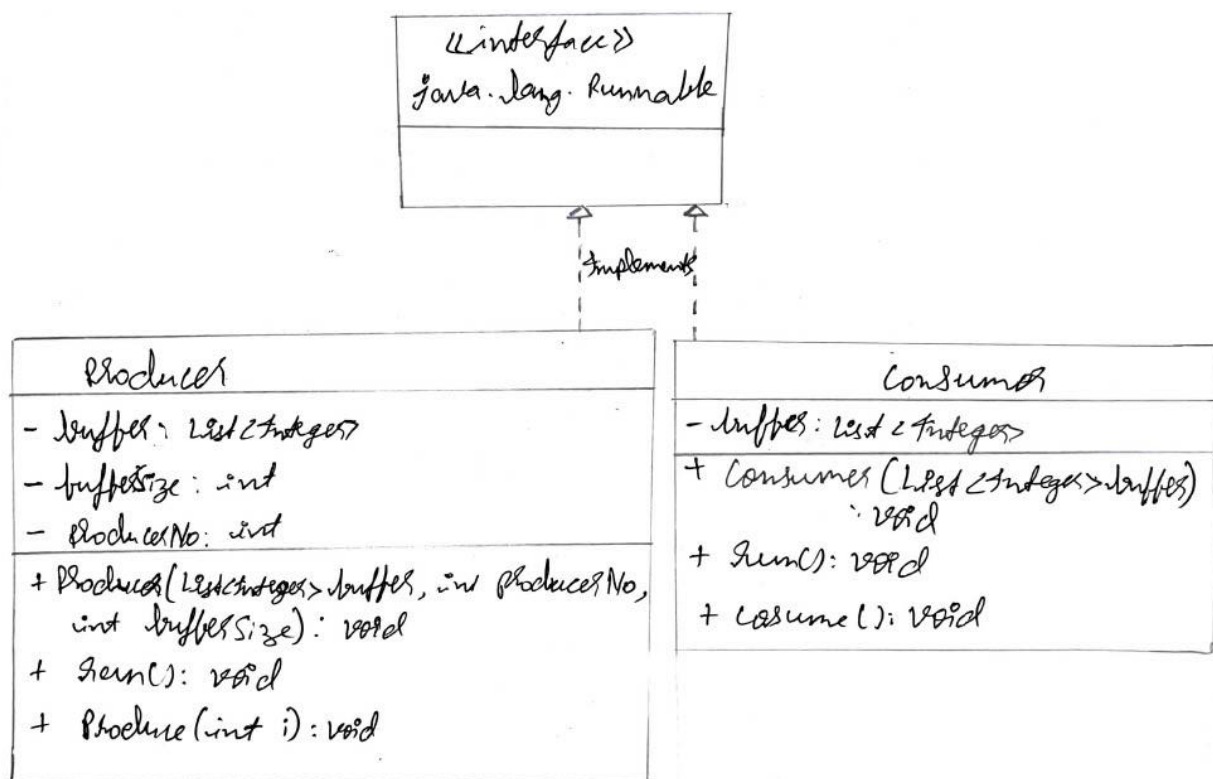 <<interface>>
java.lang.Runnable
Implements
Producer
- buffer: List<Integer>
- bufferSize: int
- ProducerNo: int
+ Producer(List<Integer> buffer, int ProducerNo,
int bufferSize): void
+ run(): void
+ Produce(int i): void
Consumer
- buffer: List<Integer>
+ Consumer(List<Integer> buffer)
: void
+ run(): void
+ cosume(): void